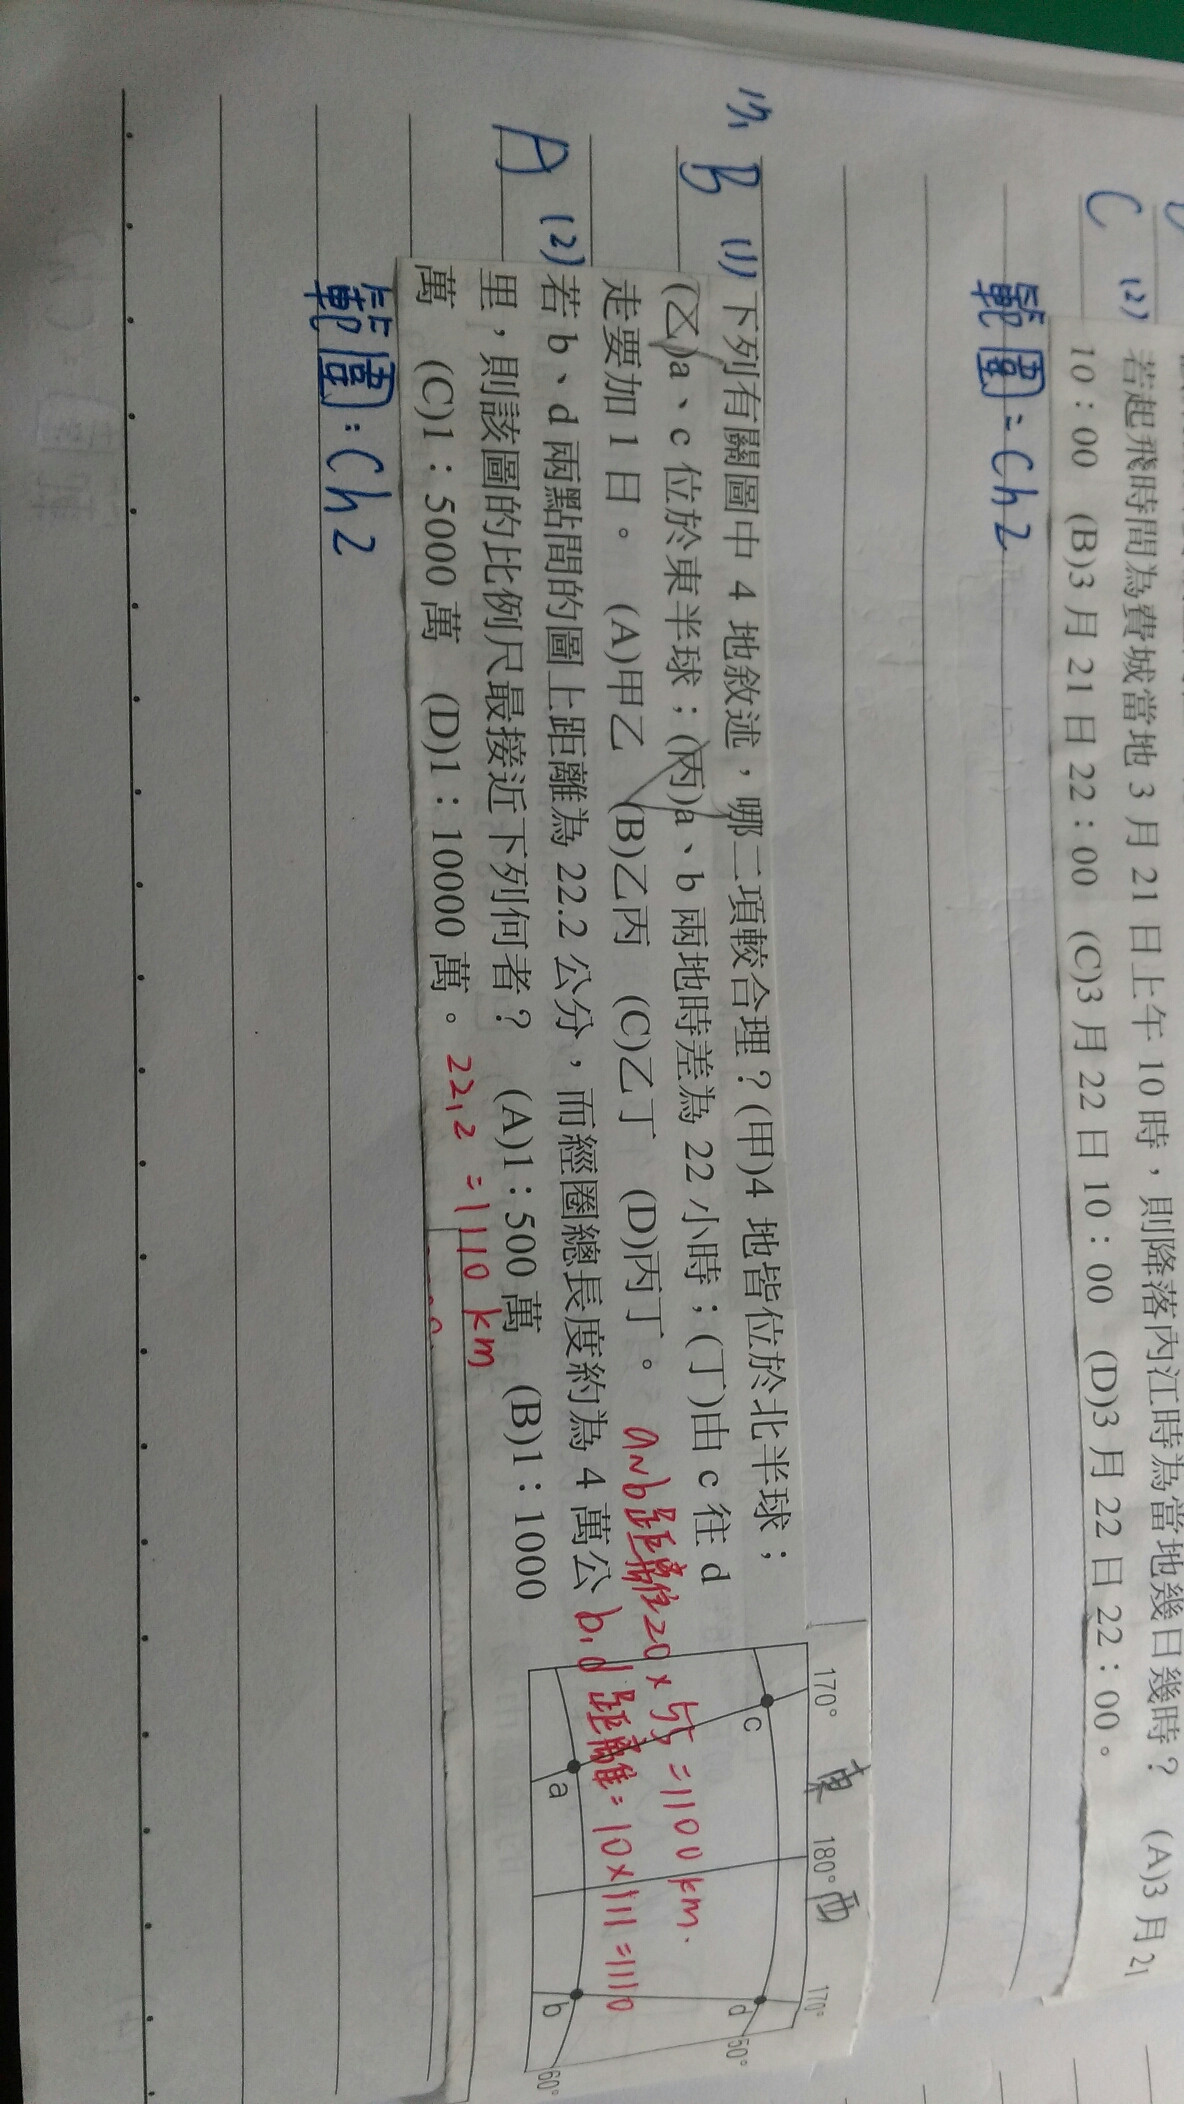 C (2) 若起飛時間為費城當地 3 月 21 日上午 10 時，則降落內江時為當地幾日幾時？ (A)3 月 21
10：00 (B)3 月 21 日 22：00 (C)3 月 22 日 10：00 (D)3 月 22 日 22：00。
範圍=Ch2
B (1) 下列有關圖中 4 地敘述，哪二項較合理？(甲)4 地皆位於北半球；
(乙)a、c 位於東半球；(丙)a、b 兩地時差為 22 小時；(丁)由 c 往 d
走要加 1 日。 (A)甲乙 (B)乙丙 (C)乙丁 (D)丙丁。
a~b距離20×55=1100km.
A (2) 若 b、d 兩點間的圖上距離為 22.2 公分，而經圈總長度約為 4 萬公
里，則該圖的比例尺最接近下列何者？ (A)1：500 萬 (B)1：1000
萬 (C)1：5000 萬 (D)1：10000 萬。
b,d距離=10×111=1110
22.2=1110 km
範圍：Ch2
170° 東 180° 西 170°
c
d
50°
a
b
60°